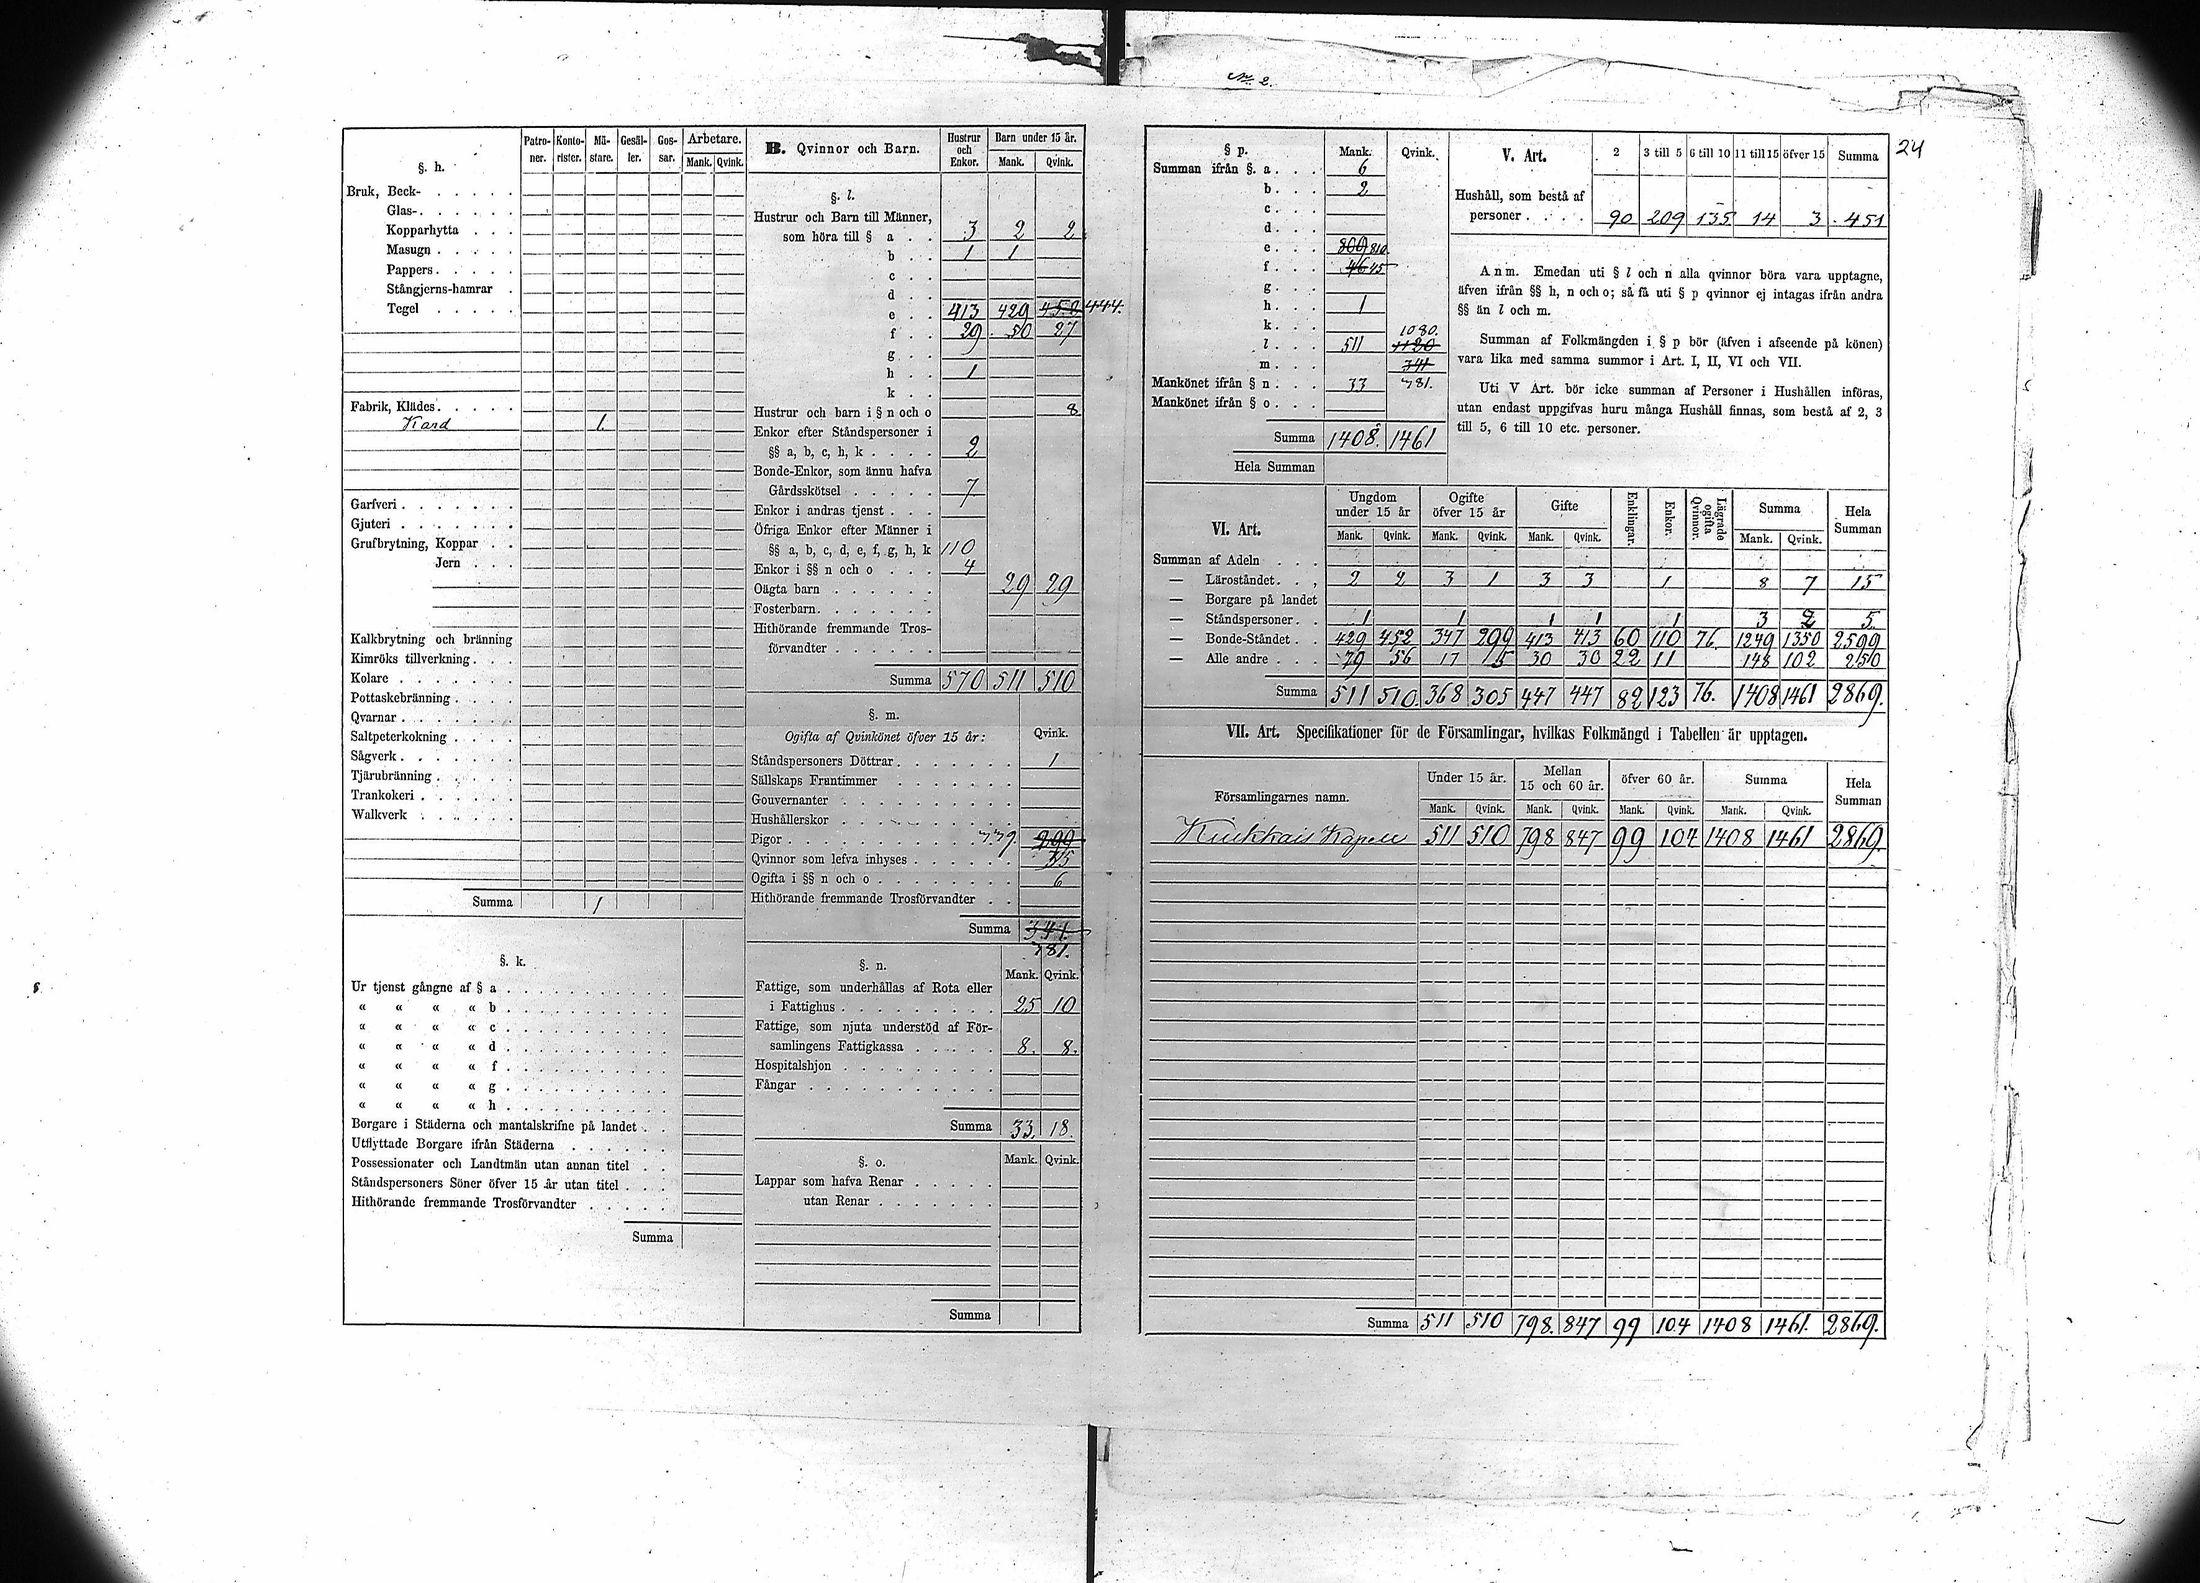 No 2.
24
§. h.
Patroner. Kontorister. Mästare. Gesäller. Gossar. Arbetare. Mank. Qvink.
Bruk, Beck-
Glas-
Kopparhytta
Masugn
Pappers
Stångjerns-hamrar
Tegel
Fabrik, Klädes
Kard 1.
Garfveri
Gjuteri
Grufbrytning, Koppar
Jern
Kalkbrytning och bränning
Kimröks tillverkning
Kolare
Pottaskebränning
Qvarnar
Saltpeterkokning
Sågverk
Tjärubränning
Trankokeri
Walkverk
Summa 1
§. k.
Ur tjenst gångne af § a
« « « « b
« « « « c
« « « « d
« « « « f
« « « « g
« « « « h
Borgare i Städerna och mantalskrifne på landet
Utflyttade Borgare ifrån Städerna
Possessionater och Landtmän utan annan titel
Ståndspersoners Söner öfver 15 år utan titel
Hithörande fremmande Trosförvandter
Summa
B. Qvinnor och Barn. Hustrur och Enkor. Barn under 15 år. Mank. Qvink.
§. l.
Hustrur och Barn till Männer,
som höra till § a 3 2 2
b 1 1
c
d
e 413 429 450 444.
f 29 50 27
g
h 1
k
Hustrur och barn i § n och o 8
Enkor efter Ståndspersoner i
§§ a, b, c, h, k 2
Bonde-Enkor, som ännu hafva
Gårdsskötsel 7
Enkor i andras tjenst
Öfriga Enkor efter Männer i
§§ a, b, c, d, e, f, g, h, k 110
Enkor i §§ n och o 4
Oägta barn 29 29
Fosterbarn
Hithörande fremmande Trosförvandter
Summa 570 511 510
§. m.
Ogifta af Qvinkönet öfver 15 år: Qvink.
Ståndspersoners Döttrar 1
Sällskaps Fruntimmer
Gouvernanter
Hushållerskor
Pigor 339. 299
Qvinnor som lefva inhyses 35
Ogifta i §§ n och o 6
Hithörande fremmande Trosförvandter
Summa 341.
381.
§. n. Mank. Qvink.
Fattige, som underhållas af Rota eller
i Fattighus 25 10
Fattige, som njuta understöd af Församlingens Fattigkassa 8. 8.
Hospitalshjon
Fångar
Summa 33. 18.
§. o. Mank. Qvink.
Lappar som hafva Renar
utan Renar
Summa
§ p. Mank. Qvink.
Summan ifrån §. a 6
b 2
c
d
e 809 810.
f 46 45
g
h 1
k 1080.
l 511 1120
m 341
Mankönet ifrån § n 33 381.
Mankönet ifrån § o
Summa 1408. 1461
Hela Summan
V. Art. 2 3 till 5 6 till 10 11 till 15 öfver 15 Summa
Hushåll, som bestå af
personer 90 209 135 14 3 451
Anm. Emedan uti § l och n alla qvinnor böra vara upptagne,
äfven ifrån §§ h, n och o; så få uti § p qvinnor ej intagas ifrån andra
§§ än l och m.
Summan af Folkmängden i § p bör (äfven i afseende på könen)
vara lika med samma summor i Art. I, II, VI och VII.
Uti V Art. bör icke summan af Personer i Hushållen införas,
utan endast uppgifvas huru många Hushåll finnas, som bestå af 2, 3
till 5, 6 till 10 etc. personer.
VI. Art. Ungdom under 15 år Ogifte öfver 15 år Gifte Enklingar. Enkor. Lägrade ogifta Qvinnor. Summa Hela Summan
Mank. Qvink. Mank. Qvink. Mank. Qvink. Mank. Qvink.
Summan af Adeln
— Läroståndet 2 2 3 1 3 3 1 8 7 15
— Borgare på landet
— Ståndspersoner 1 1 1 1 1 3 2 5
— Bonde-Ståndet 429 452 347 299 413 413 60 110 76. 1249 1350 2599
— Alle andre 79 56 17 5 30 30 22 11 148 102 250
Summa 511 510. 368 305 447 447 82 123 76. 1408 1461 2869.
VII. Art. Specifikationer för de Församlingar, hvilkas Folkmängd i Tabellen är upptagen.
Församlingarnes namn. Under 15 år. Mellan 15 och 60 år. öfver 60 år. Summa Hela Summan
Mank. Qvink. Mank. Qvink. Mank. Qvink. Mank. Qvink.
Kapell 511 510 798 847 99 104 1408 1461 2869.
Summa 511 510 798. 847 99 104 1408 1461. 2869.